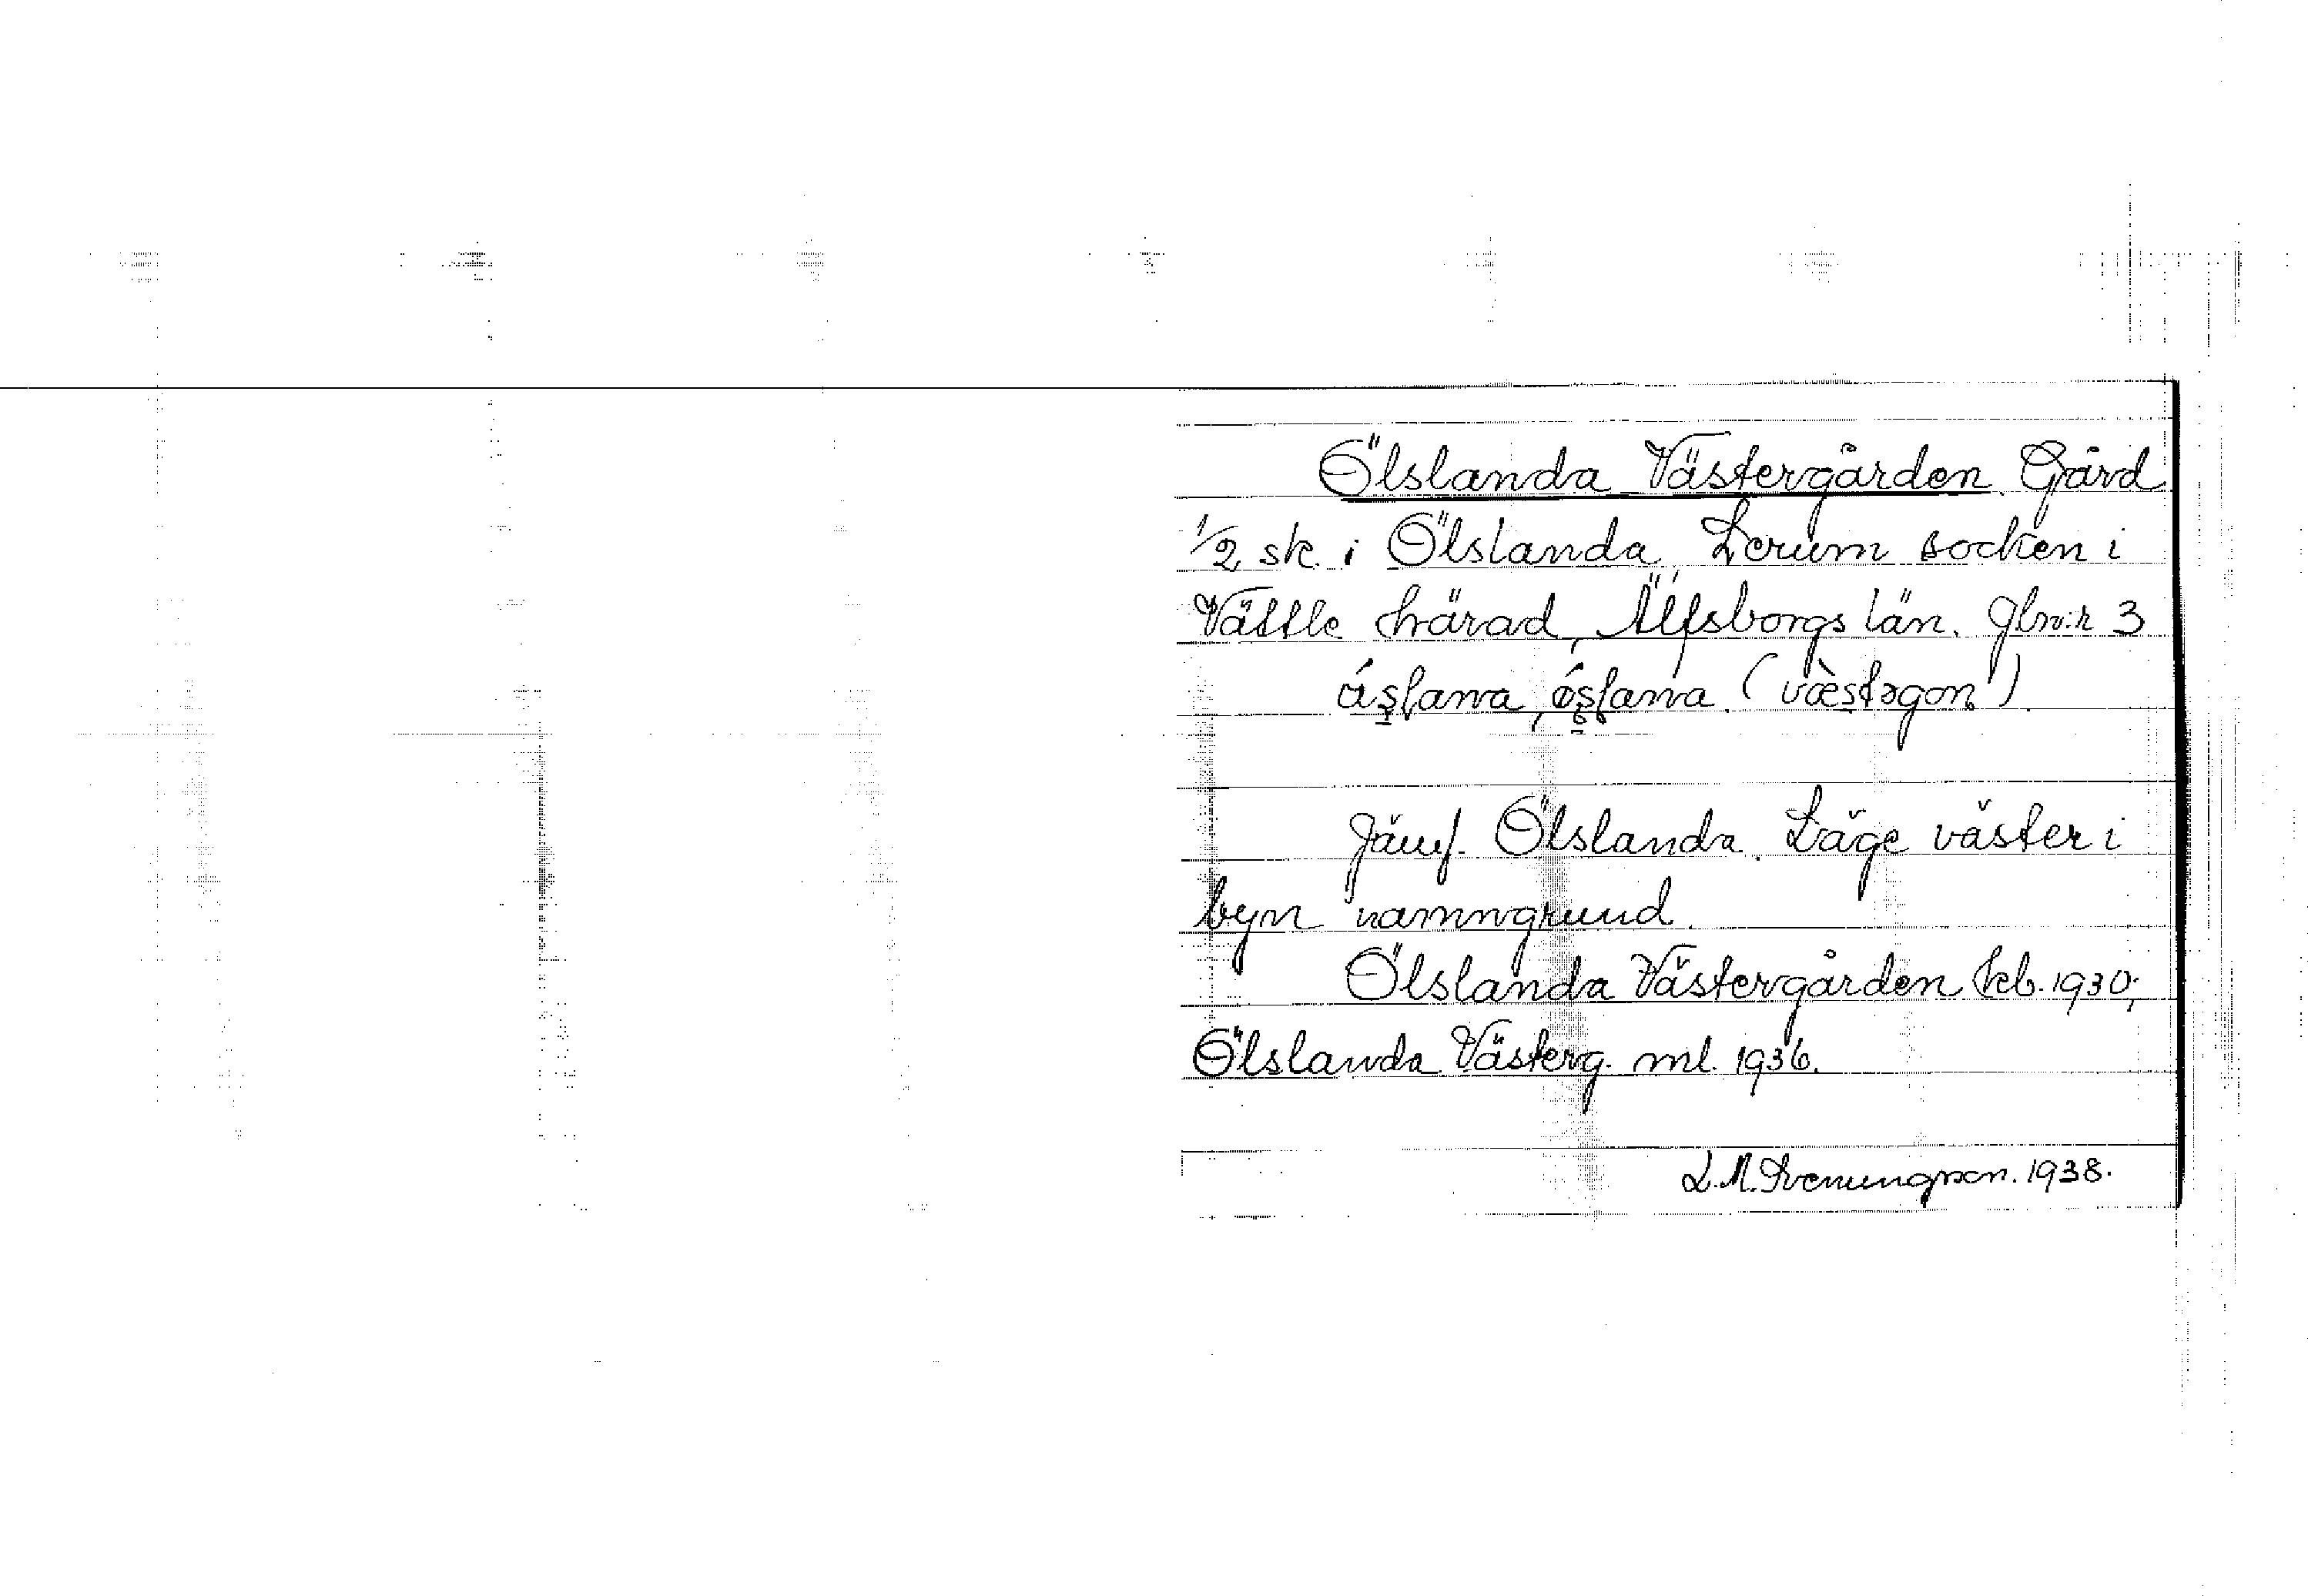 Ölslanda Västergården. Gård
1/2 sk. i Ölslanda, Lerum socken i
Vättle härad, Älfsborgs län. Jbnr 3
(væstəgɔn)
Jämf. Ölslanda. Läge väster i
byn namngrund.
Ölslanda Västergården kb. 1930;
Ölslanda Västerg. ml. 1936.
L.M. Svenungsson. 1938.